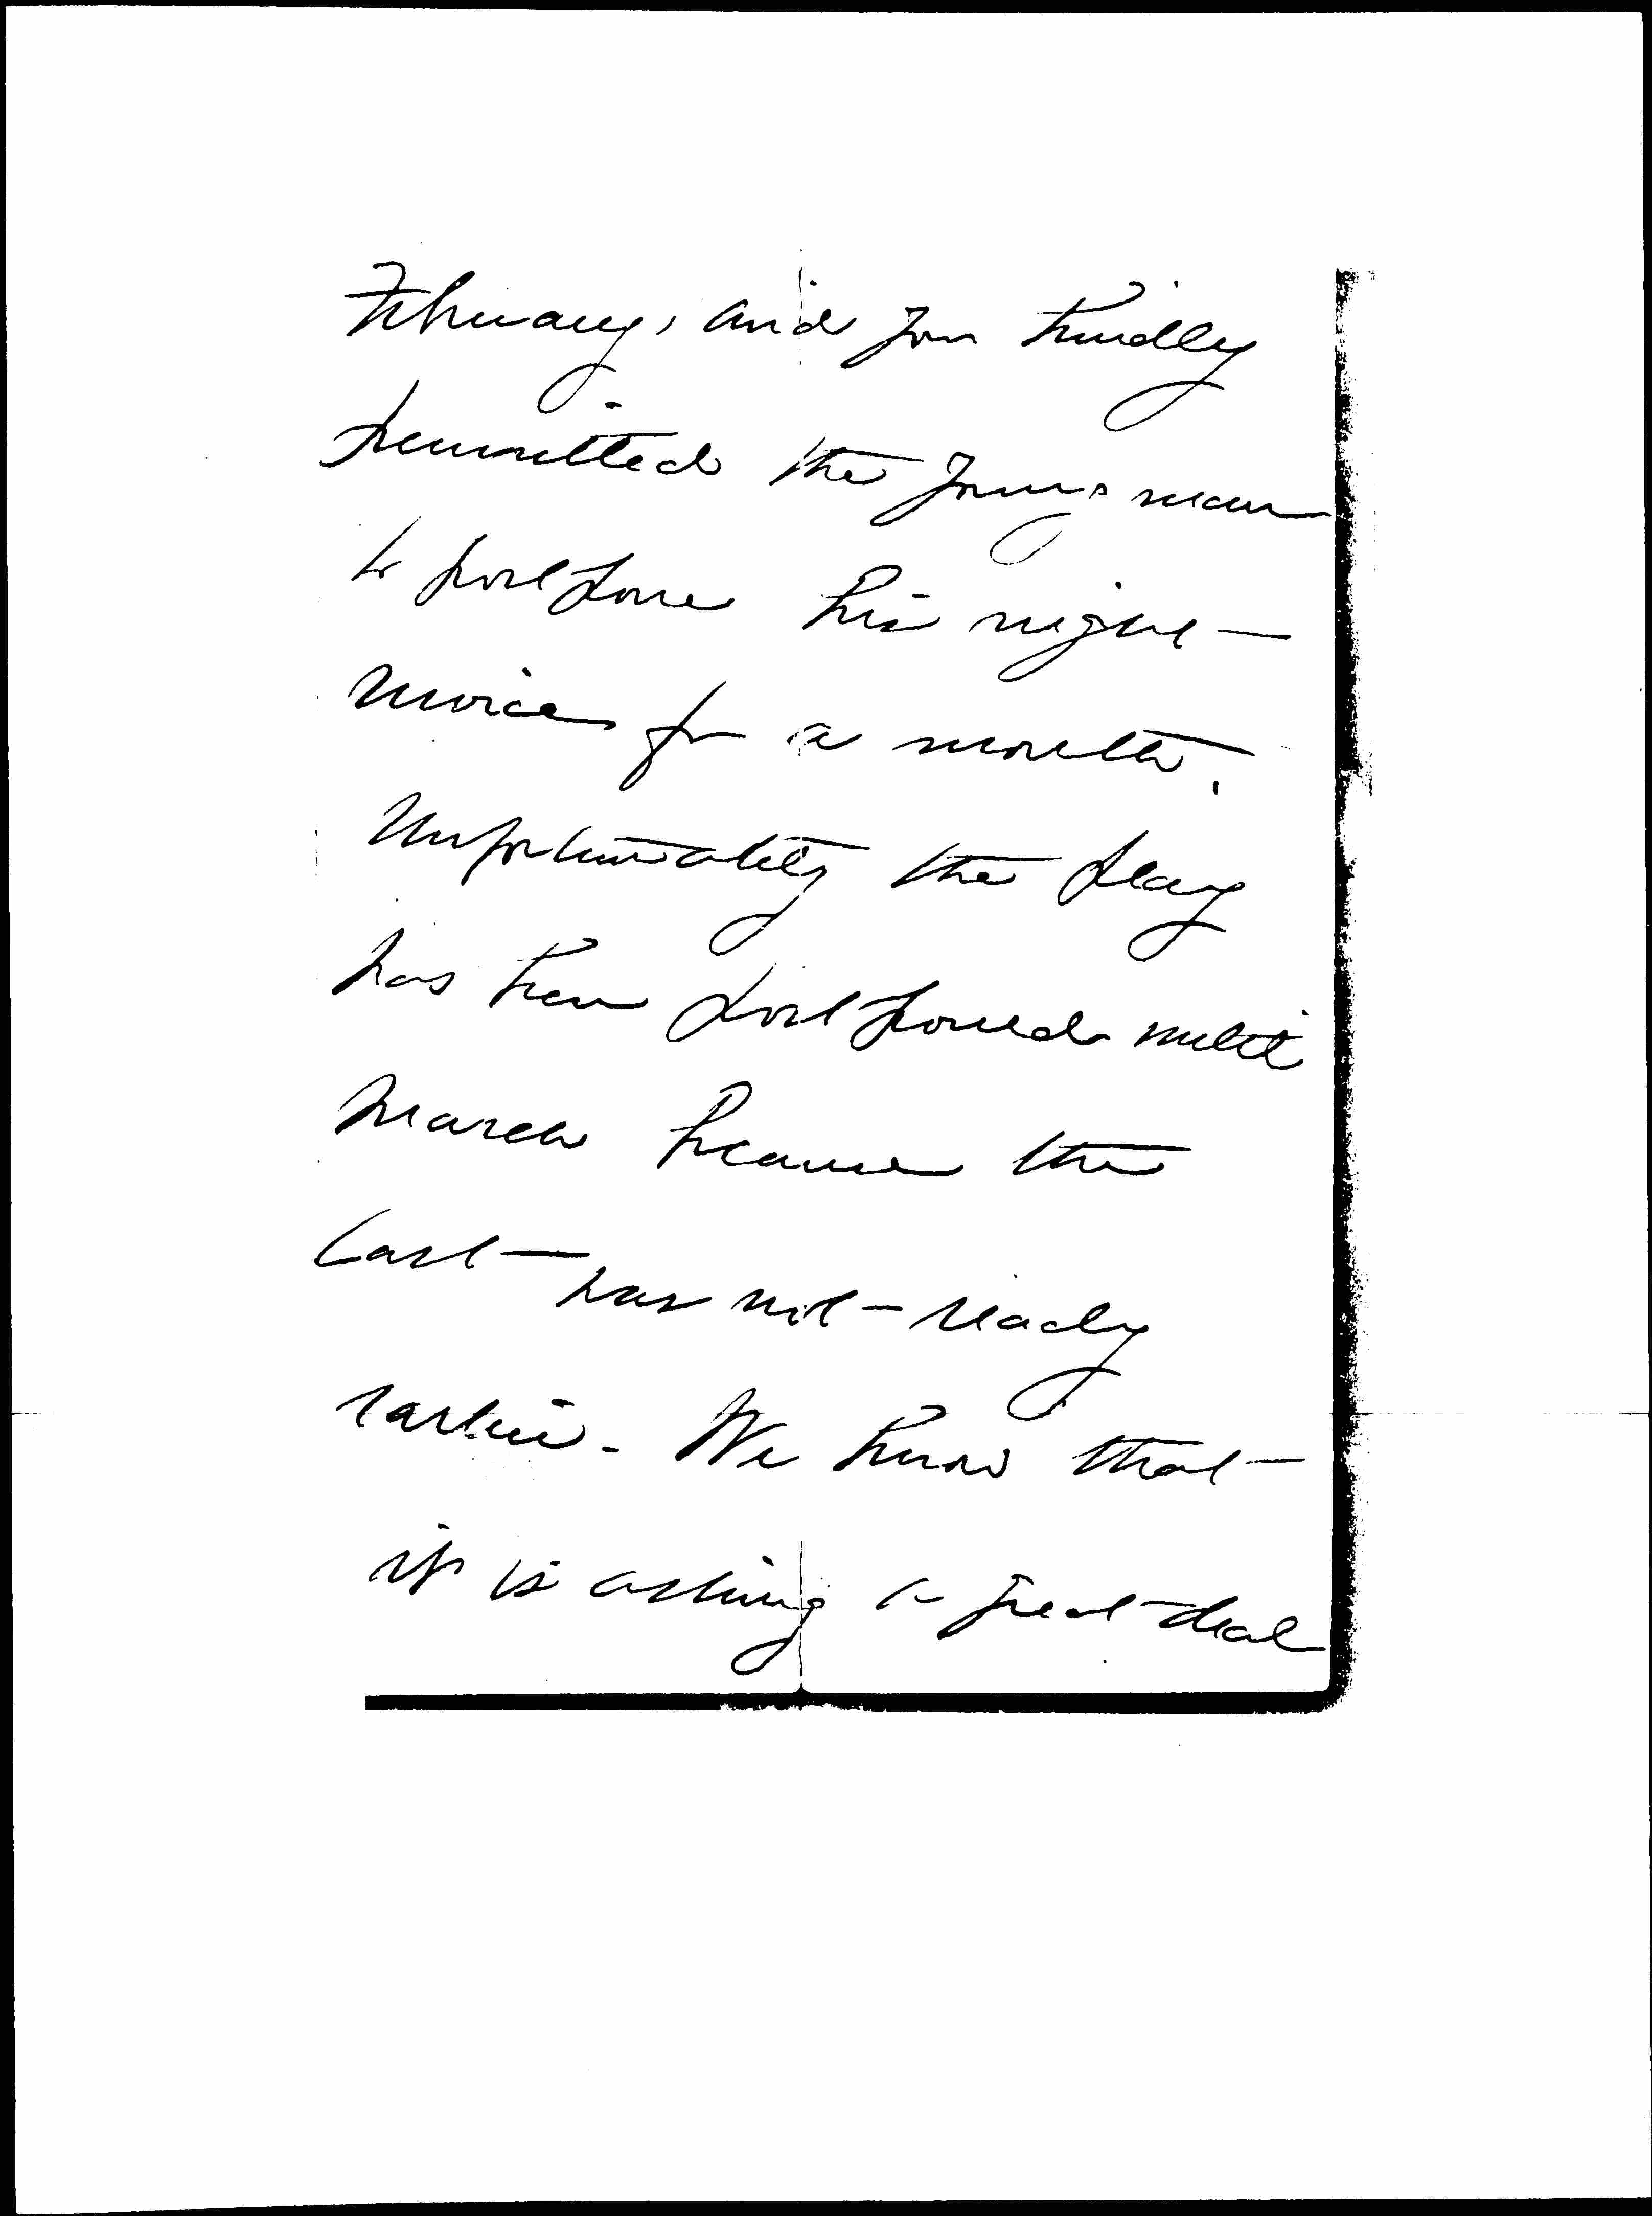 February, and you kindly
permitted the young man
to postpone his night
for a month.
Unfortunately the play
has been postponed until
March because the
Cast has not ready
earlier. We know that
it is asking a great deal